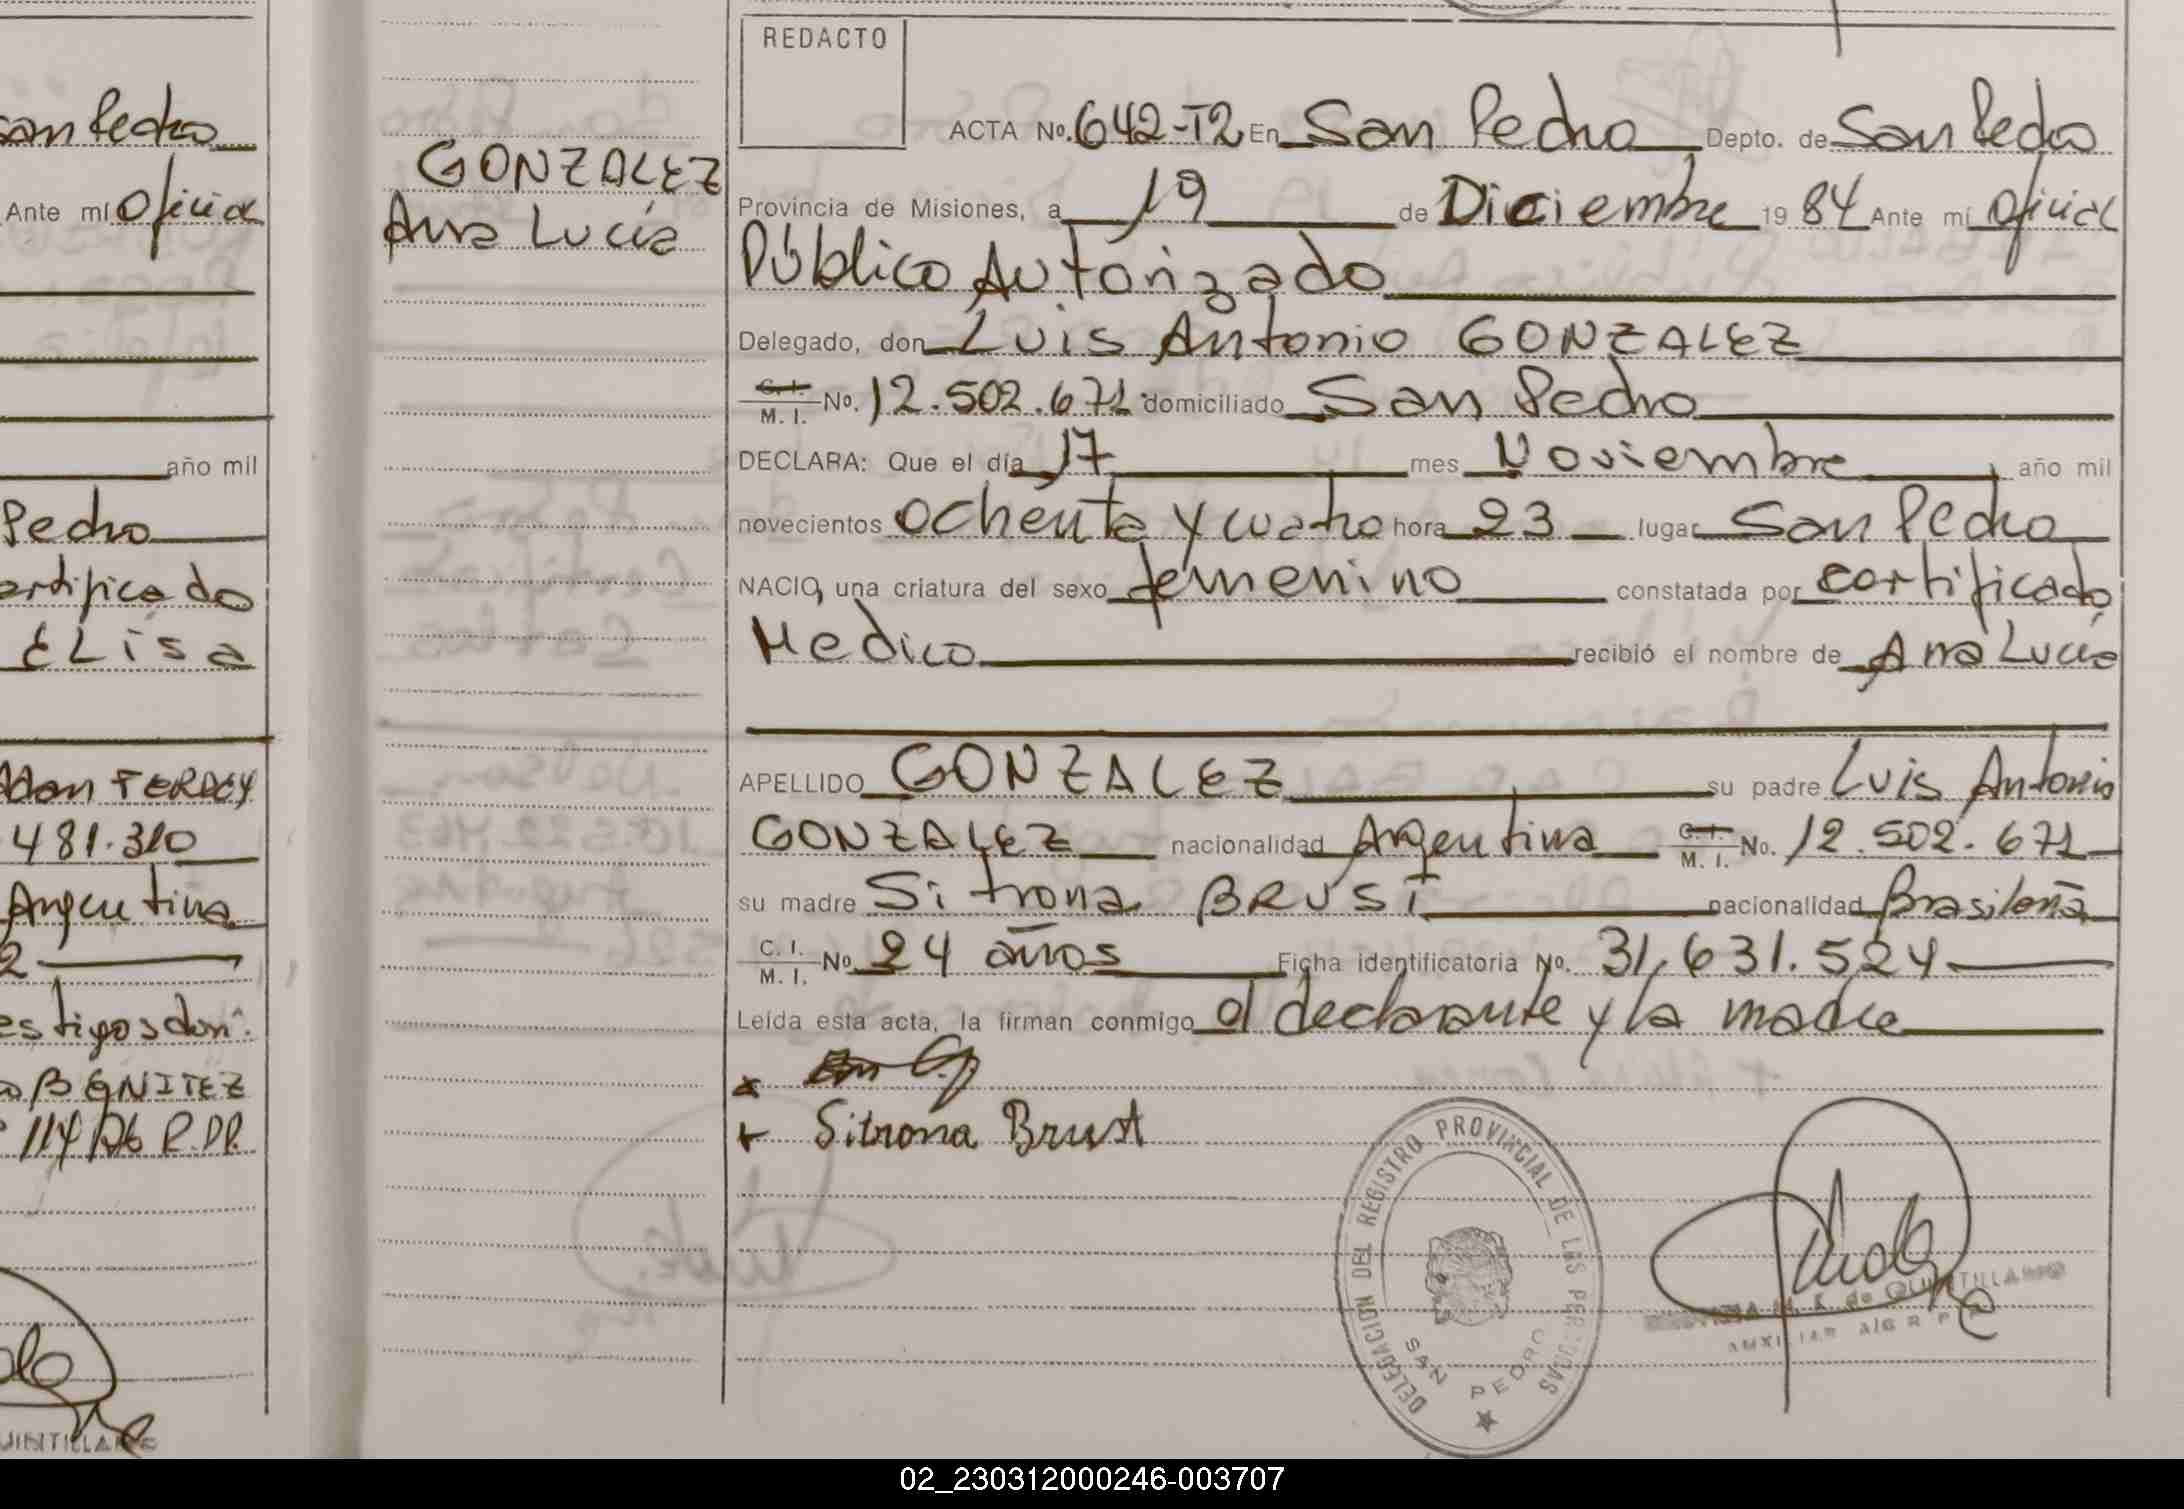 san Pedro
Ante mí Oficial
año mil
Pedro
ertificado
ELisa
481.310
Argentina
2
estigos don
BENITEZ
GONZALEZ
Ana Lucía
REDACTO
ACTA No. 642-T2 En San Pedro Depto. de San Pedro
Provincia de Misiones, a 19 de Diciembre 19 84 Ante mí Oficial
Público Autorizado
Delegado, don Luis Antonio GONZALEZ
C. I. M. I. No. 12.502.671 domiciliado San Pedro
DECLARA: Que el día 17 mes Noviembre año mil
novecientos ochenta y cuatro hora 23 lugar San Pedro
NACIO, una criatura del sexo femenino constatada por certificado
Medico recibió el nombre de Ana Lucía
APELLIDO GONZALEZ su padre Luis Antonio
GONZALEZ nacionalidad Argentina C. I. M. I. No. 12.502.671
su madre Sitrona BRUST nacionalidad Brasileña
C. I. M. I. No 24 años Ficha identificatoria No. 31.631.524
Leída esta acta, la firman conmigo el declarante y la madre
Sitrona Brust
DELEGACION DEL REGISTRO PROVINCIAL DE LAS PERSONAS
SAN PEDRO
de QUINTILLANO
AUXILIAR
02_230312000246-003707